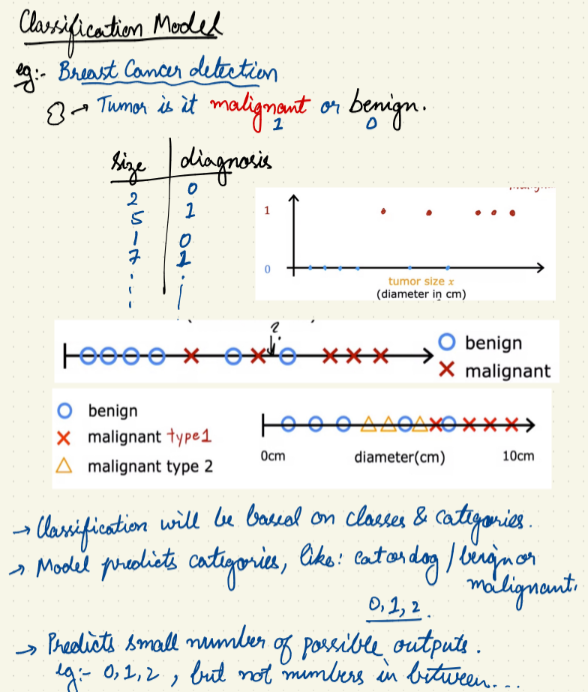 Classification Model
eg:- Breast Cancer detection
→ Tumor is it malignant or benign.
1 0
size diagnosis
2 0
5 1
1 0
7 1
1
0
tumor size x
(diameter in cm)
?
benign
malignant
benign
malignant type1
malignant type 2
0cm diameter(cm) 10cm
→ Classification will be based on classes & categories.
→ Model predicts categories, like: cat or dog / benign or
malignant.
0, 1, 2.
→ Predicts small number of possible outputs.
eg:- 0, 1, 2, but not numbers in between...